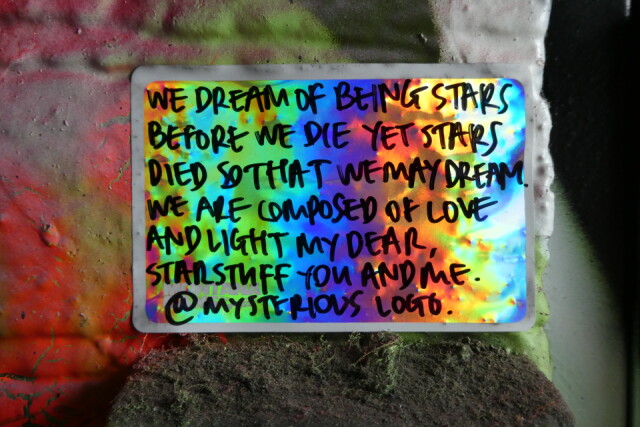 WE DREAM OF BEING STARS
BEFORE WE DIE YET STARS
DIED SO THAT WE MAY DREAM.
WE ARE COMPOSED OF LOVE
AND LIGHT MY DEAR,
STARSTUFF YOU AND ME.
@MYSTERIOUS LOGO.